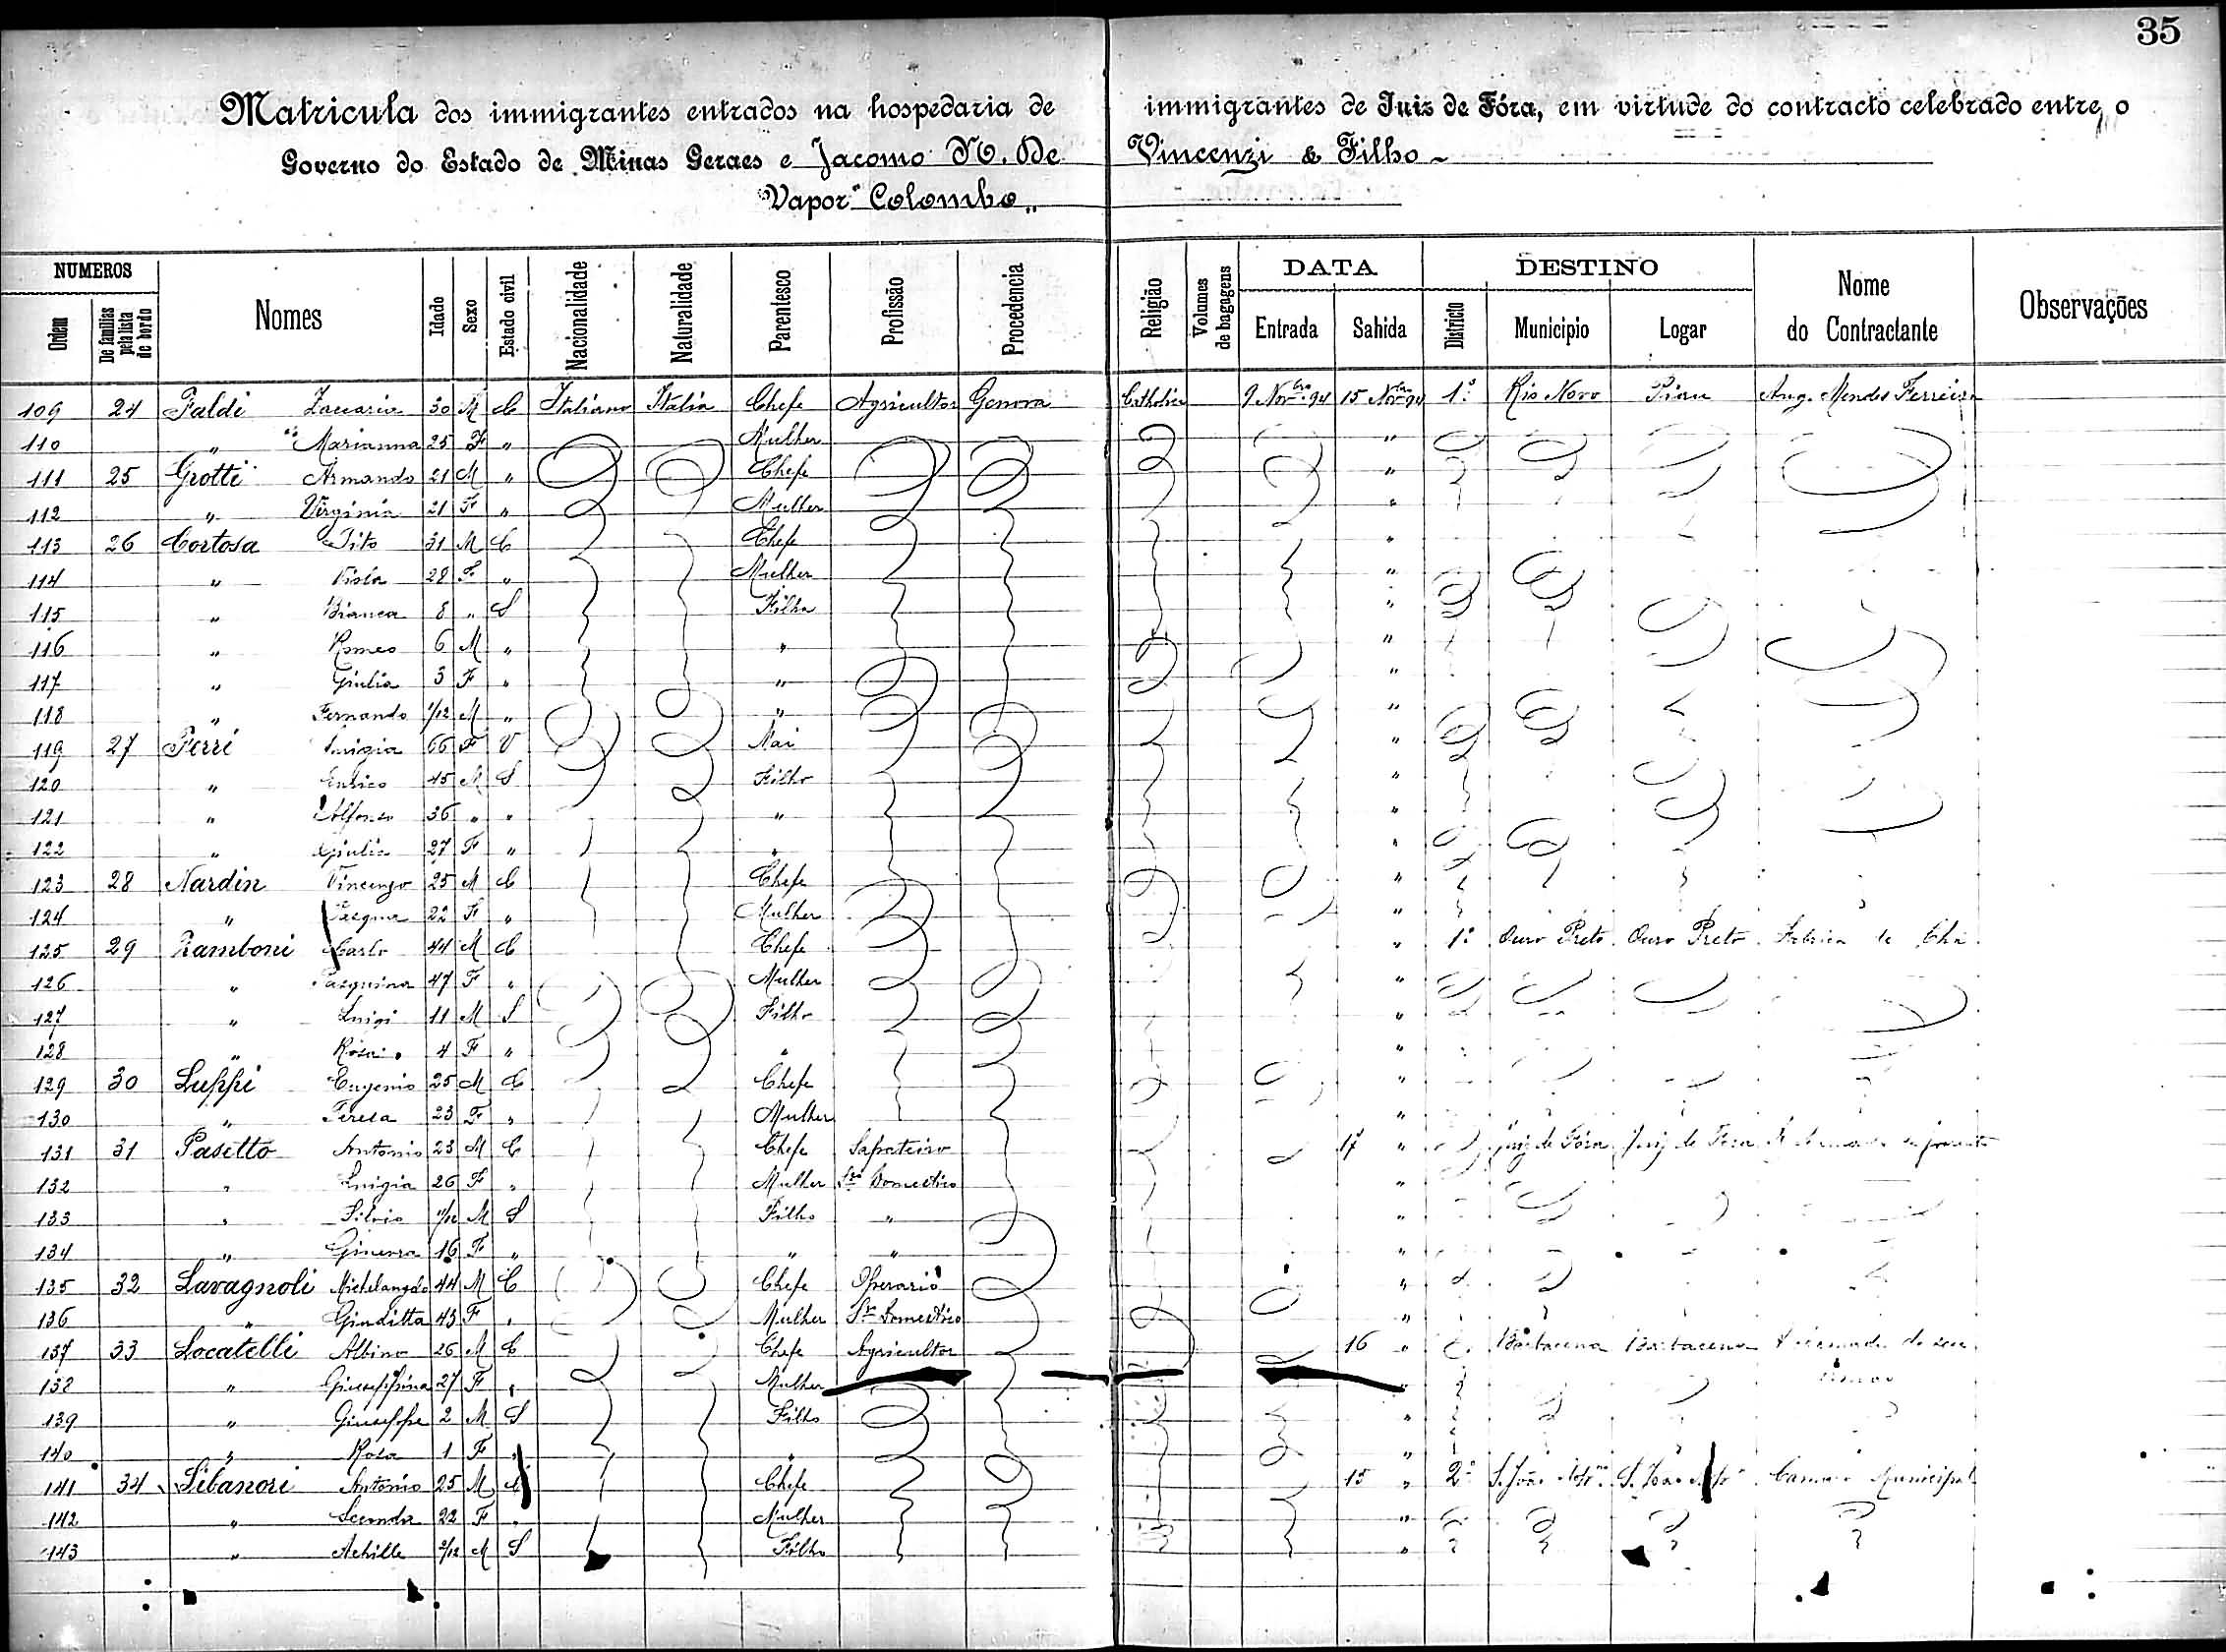 35
Matricula dos immigrantes entrados na hospedaria de immigrantes de Juiz de Fóra, em virtude do contracto celebrado entre o
Governo do Estado de Minas Geraes e Jacomo N. De Vincenzi & Filho
"Vapor" Colombo"
NUMEROS
Ordem
De familias pela lista de bordo
Nomes
Idade
Sexo
Estado civil
Nacionalidade
Naturalidade
Parentesco
Profissão
Procedencia
Religião
Volumes de bagagens
DATA
Entrada
Sahida
DESTINO
Districto
Municipio
Logar
Nome do Contractante
Observações
109 24 Faldi Zaccaria 30 M C Italiano Italia Chefe Agricultor Genova Catholica 9 Novbro 94 15 Novbro 94 1º Rio Novo Piau Aug. Mendes Ferreira
110 " Marianna 25 F " Mulher "
111 25 Grotti Armando 21 M " Chefe "
112 " Virginia 21 F " Mulher "
113 26 Cortosa Tito 31 M C Chefe "
114 " Viola 28 F " Mulher "
115 " Bianca 8 " S Filha "
116 " Romeo 6 M " " "
117 " Giulia 3 F " " "
118 " Fernando 1/12 M " " "
119 27 Ferri Luigia 66 F V Mai "
120 " Enrico 45 M S Filho "
121 " Alfonso 36 " " " "
122 " Giulia 27 F " " "
123 28 Nardin Vincenzo 25 M C Chefe "
124 " 22 F " Mulher "
125 29 Zamboni Carlo 44 M C Chefe " 1º Ouro Preto Ouro Preto Fabrica de Chá
126 " Pasquina 47 F " Mulher "
127 " Luigi 11 M S Filho "
128 " Rosa 4 F " " "
129 30 Luppi Eugenio 25 M C Chefe "
130 " Teresa 23 F " Mulher "
131 31 Pasetto Antonio 23 M C Chefe Sapateiro 17 " Juiz de Fóra Juiz de Fora
132 " Luigia 26 F " Mulher Sro Domestico "
133 " Silvio 11/12 M S Filho " "
134 " Ginevra 16 F " " " "
135 32 Lavagnoli Michelangelo 44 M C Chefe Operario "
136 " Giuditta 43 F " Mulher Sro Domestico "
137 33 Locatelli Albino 26 M C Chefe Agricultor 16 " Barbacena Barbacena
138 " Giuseppina 27 F " Mulher "
139 " Giuseppe 2 M S Filho "
140 " Rosa 1 F " " "
141 34 Sibanori Antonio 25 M C Chefe 15 " 2º S. João S. João Camara Municipal
142 " Secunda 22 F " Mulher "
143 " Achille 2/12 M S Filho "